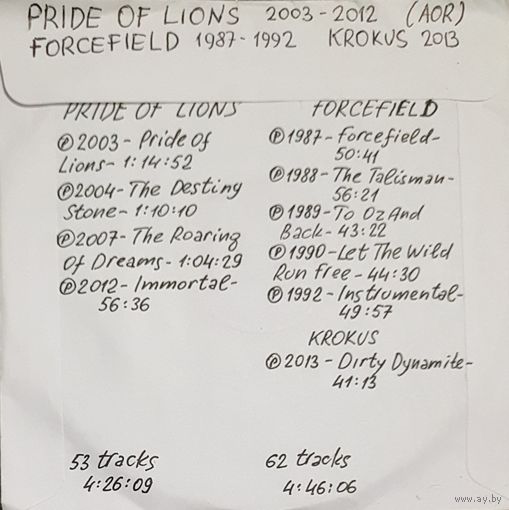 PRIDE OF LIONS 2003-2012 (AOR)
FORCEFIELD 1987-1992 KROKUS 2013
PRIDE OF LIONS
℗2003-Pride of
Lions-1:14:52
℗2004-The Destiny
Stone-1:10:10
℗2007-The Roaring
Of Dreams-1:04:29
℗2012-Immortal-
56:36
53 tracks
4:26:09
FORCEFIELD
℗1987-Forcefield-
50:41
℗1988-The Talisman-
56:21
℗1989-To Oz And
Back-43:22
℗1990-Let The Wild
Run Free-44:30
℗1992-Instrumental-
49:57
KROKUS
℗2013-Dirty Dynamite-
41:13
62 tracks
4:46:06
www.ay.by